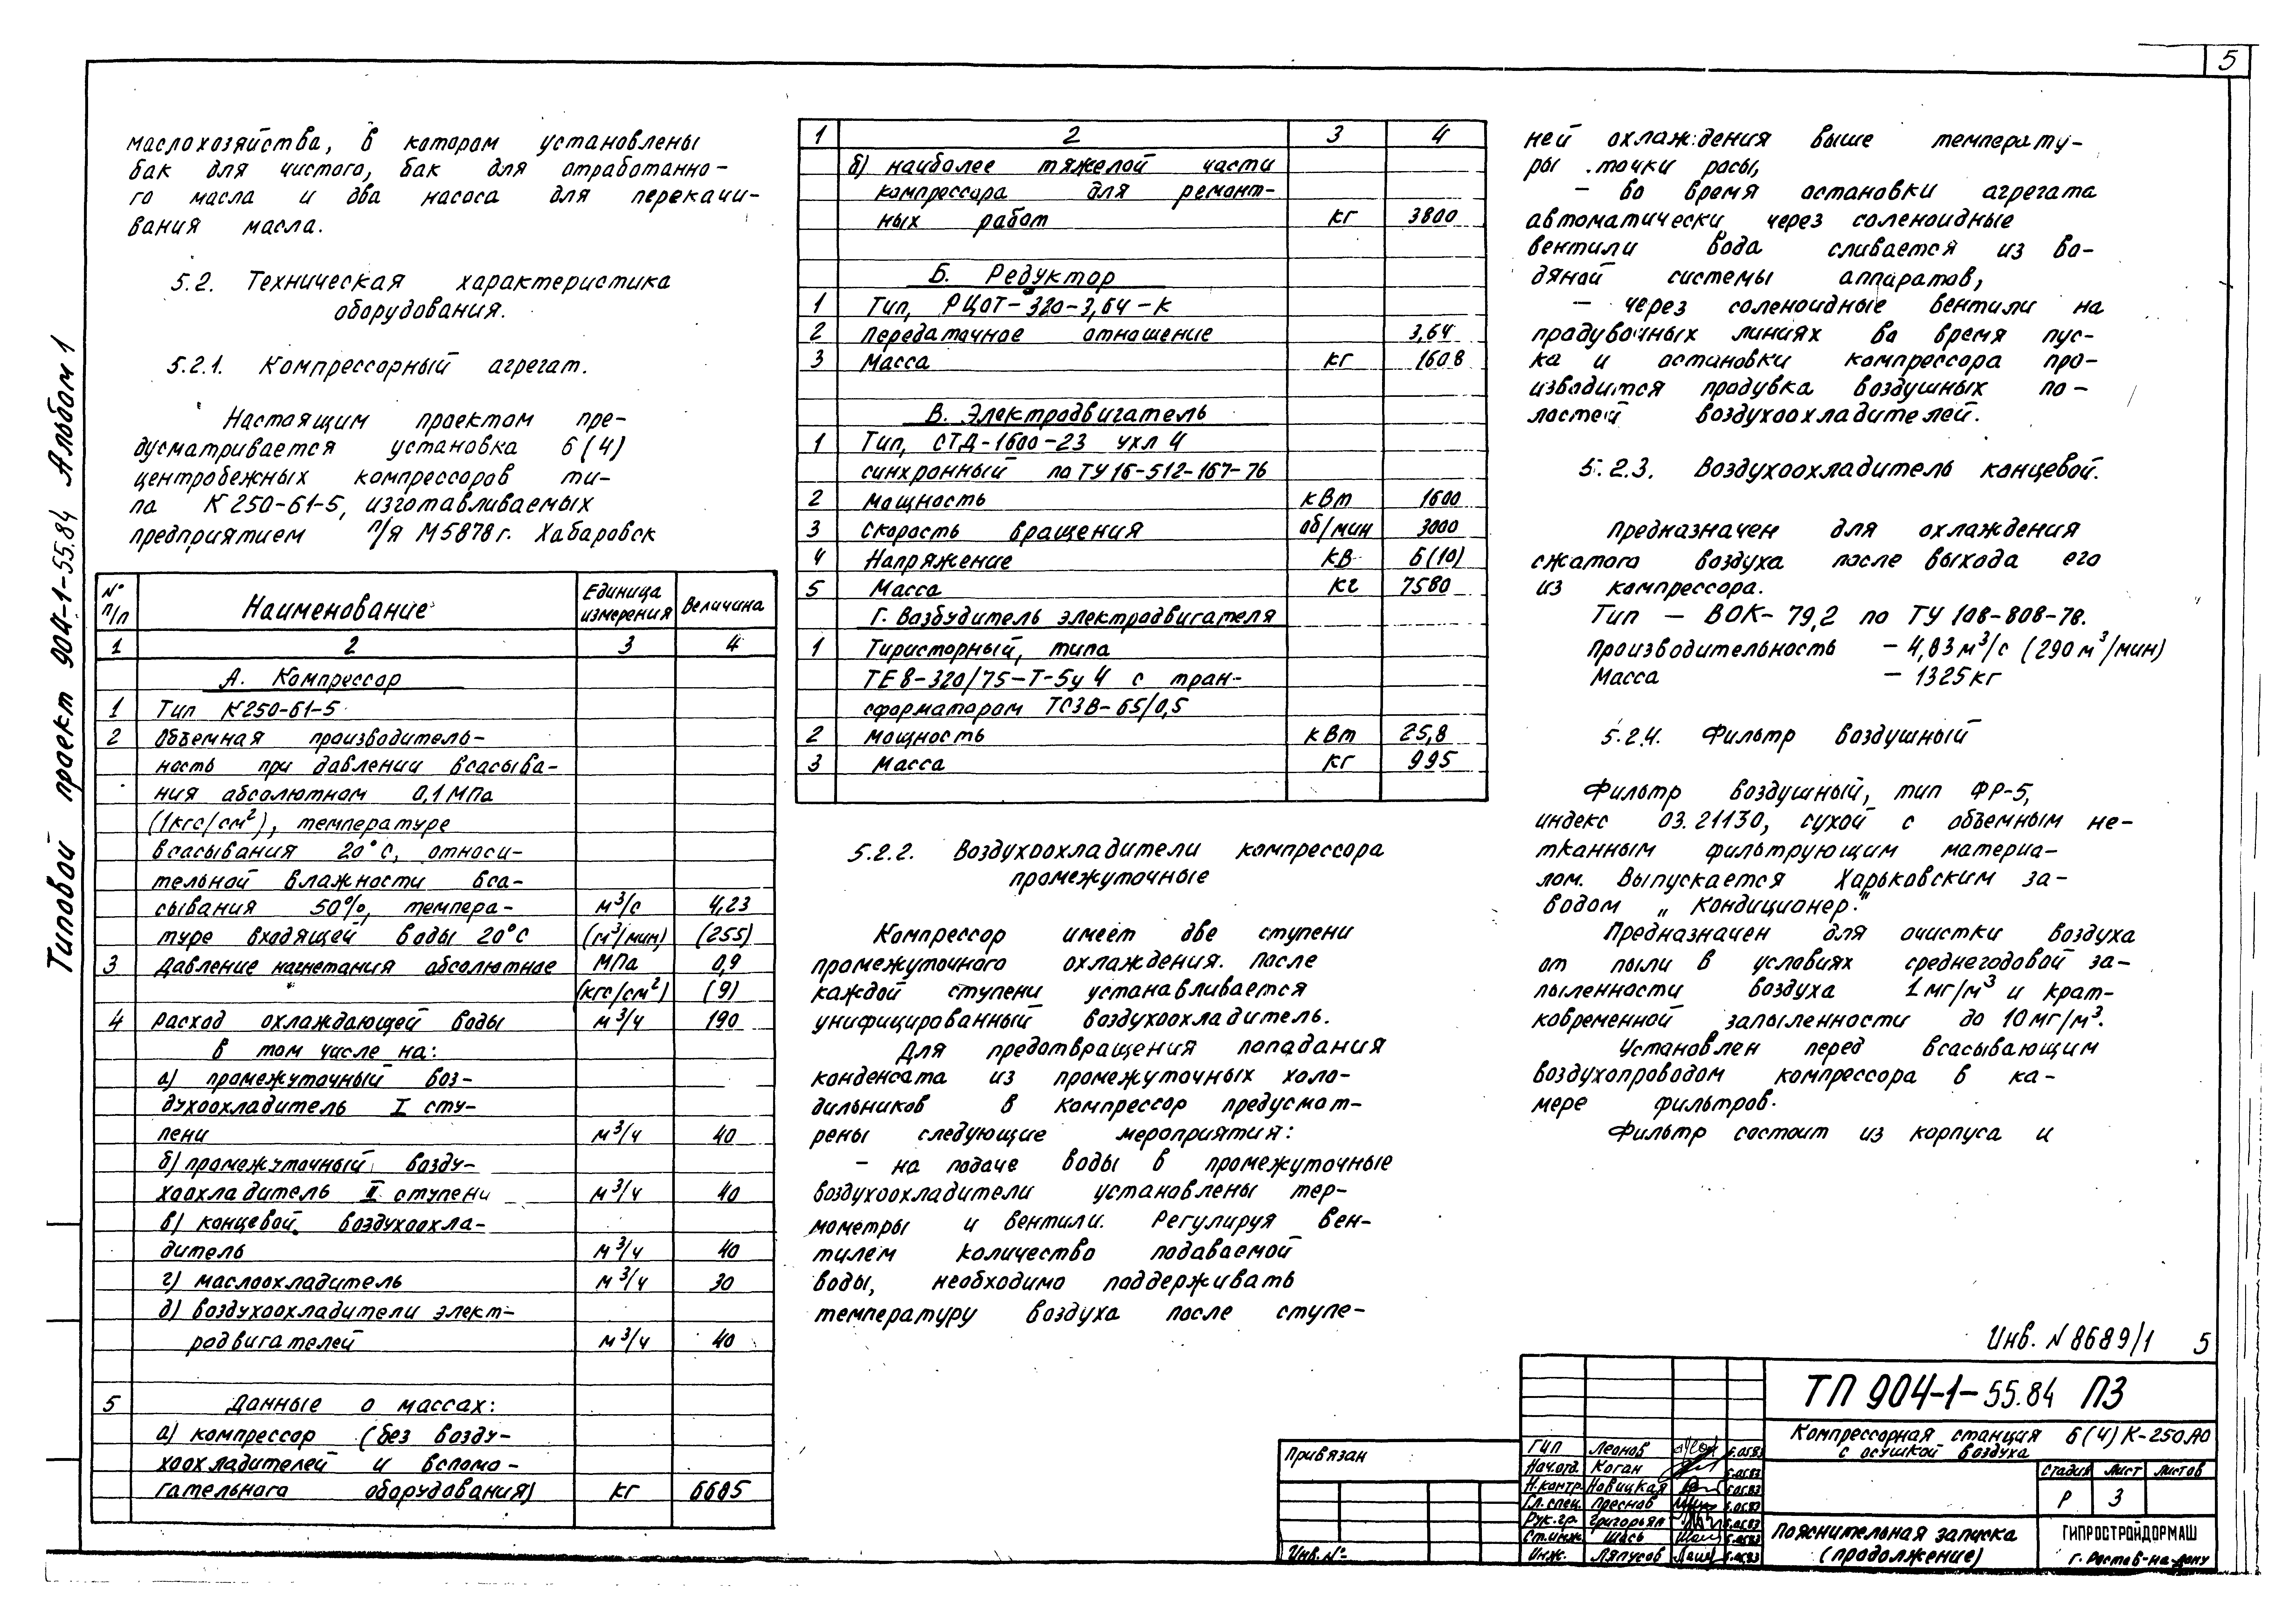 5
Типовой проект 904-1-55.84 Альбом 1
маслохозяйства, в котором установлены
бак для чистого, бак для отработанно-
го масла и два насоса для перекачи-
вания масла.
5.2. Техническая характеристика
оборудования.
5.2.1. Компрессорный агрегат.
Настоящим проектом пре-
дусматривается установка 6(4)
центробежных компрессоров ти-
па К250-61-5, изготавливаемых
предприятием п/я М5878 г. Хабаровск
№ п/п Наименование Единица измерения Величина
1 2 3 4
А. Компрессор
1 Тип К250-61-5
2 Объемная производитель-
ность при давлении всасыва-
ния абсолютном 0,1 МПа
(1кгс/см²), температуре
всасывания 20°С, относи-
тельной влажности вса-
сывания 50%, темпера- м³/с 4,23
туре входящей воды 20°С (м³/мин) (255)
3 Давление нагнетания абсолютное МПа 0,9
(кгс/см²) (9)
4 Расход охлаждающей воды м³/ч 190
в том числе на:
а) промежуточный воз-
духоохладитель I сту-
пени м³/ч 40
б) промежуточный возду-
хоохладитель II ступени м³/ч 40
в) концевой воздухоохла-
дитель м³/ч 40
г) маслоохладитель м³/ч 30
д) воздухоохладители элект-
родвигателей м³/ч 40
5 Данные о массах:
а) компрессор (без возду-
хоохладителей и вспомо-
гательного оборудования) кг 6685
1 2 3 4
б) наиболее тяжелой части
компрессора для ремонт-
ных работ кг 3800
Б. Редуктор
1 Тип, РЦОТ-320-3,64-К
2 Передаточное отношение 3,64
3 Масса кг 1608
В. Электродвигатель
1 Тип, СТД-1600-23 УХЛ 4
синхронный по ТУ 16-512-167-76
2 Мощность кВт 1600
3 Скорость вращения об/мин 3000
4 Напряжение кВ 6(10)
5 Масса кг 7580
Г. Возбудитель электродвигателя
1 Тиристорный, типа
ТЕ8-320/75-Т-5У4 с тран-
сформатором ТСЗВ-65/0,5
2 Мощность кВт 25,8
3 Масса кг 995
5.2.2. Воздухоохладители компрессора
промежуточные
Компрессор имеет две ступени
промежуточного охлаждения. После
каждой ступени устанавливается
унифицированный воздухоохладитель.
Для предотвращения попадания
конденсата из промежуточных холо-
дильников в компрессор предусмот-
рены следующие мероприятия:
- на подаче воды в промежуточные
воздухоохладители установлены тер-
мометры и вентили. Регулируя вен-
тилем количество подаваемой
воды, необходимо поддерживать
температуру воздуха после ступе-
ней охлаждения выше температу-
ры точки росы,
- во время остановки агрегата
автоматически через соленоидные
вентили вода сливается из во-
дяной системы аппаратов,
- через соленоидные вентили на
продувочных линиях во время пус-
ка и остановки компрессора про-
изводится продувка воздушных по-
лостей воздухоохладителей.
5.2.3. Воздухоохладитель концевой.
Предназначен для охлаждения
сжатого воздуха после выхода его
из компрессора.
Тип - ВОК-79,2 по ТУ 108-808-78.
Производительность - 4,83 м³/с (290 м³/мин)
Масса - 1325 кг
5.2.4. Фильтр воздушный
Фильтр воздушный, тип ФР-5,
индекс 03.21130, сухой с объемным не-
тканным фильтрующим материа-
лом. Выпускается Харьковским за-
водом „Кондиционер."
Предназначен для очистки воздуха
от пыли в условиях среднегодовой за-
пыленности воздуха 1 мг/м³ и крат-
ковременной запыленности до 10мг/м³.
Установлен перед всасывающим
воздухопроводом компрессора в ка-
мере фильтров.
Фильтр состоит из корпуса и
Инв. N 8689/1 5
ТП 904-1-55.84 ПЗ
Компрессорная станция 6(4)К-250А0
с осушкой воздуха
Стадия Лист Листов
Р 3
Пояснительная записка
(продолжение)
ГИПРОСТРОЙДОРМАШ
г. Ростов-на-Дону
Привязан
Инв. №
ГИП Леонов
Нач.отд. Коган
Н.контр. Новицкая
Гл.спец. Преснов
Рук.гр. Григорьян
Ст.инж. Шась
Инж. Ляпусов